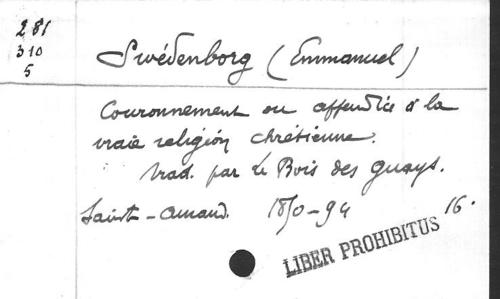 281
310
5
Swédenborg (Emmanuel)
Couronnement ou appendice à la
vraie religion chrétienne.
trad. par Le Bois des Guays.
Saint-Amand. 1850-94 16°
LIBER PROHIBITUS